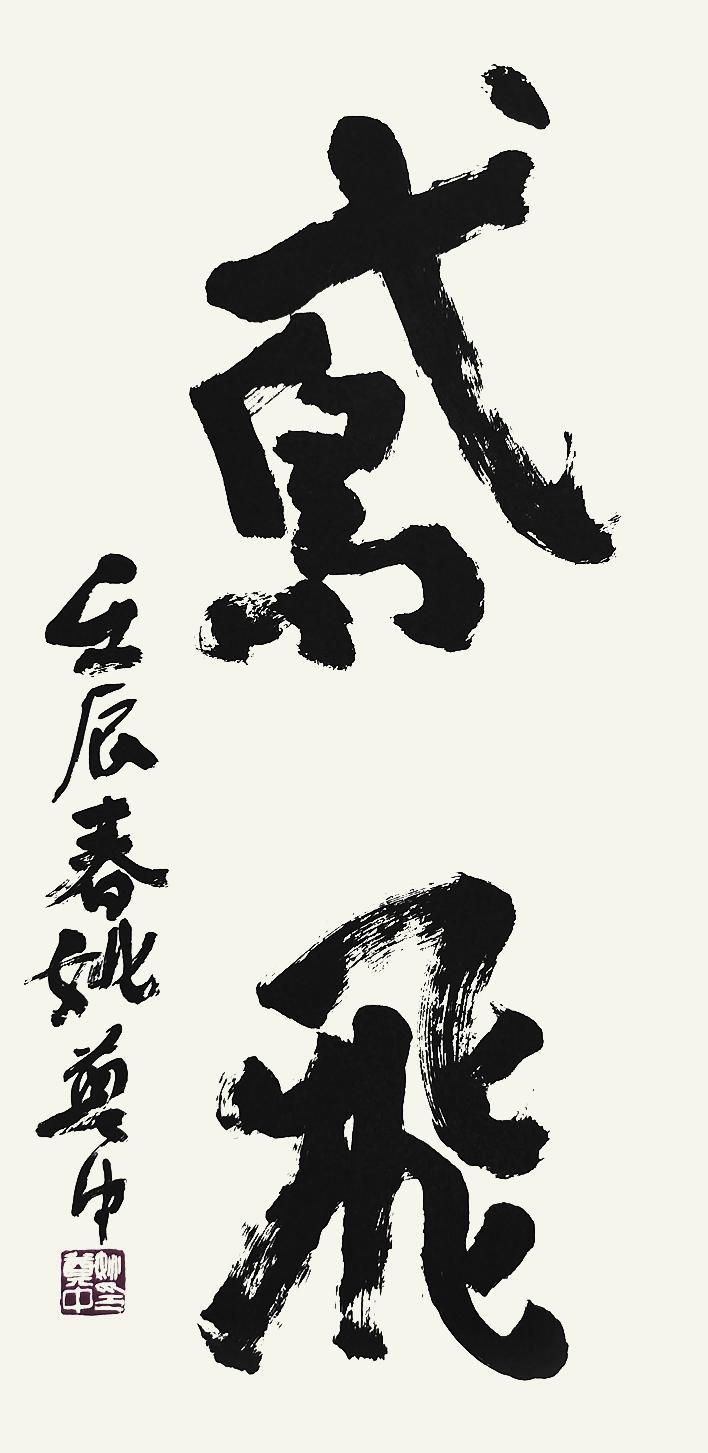 鳶飛
壬辰春姚奠中
姚印
奠中